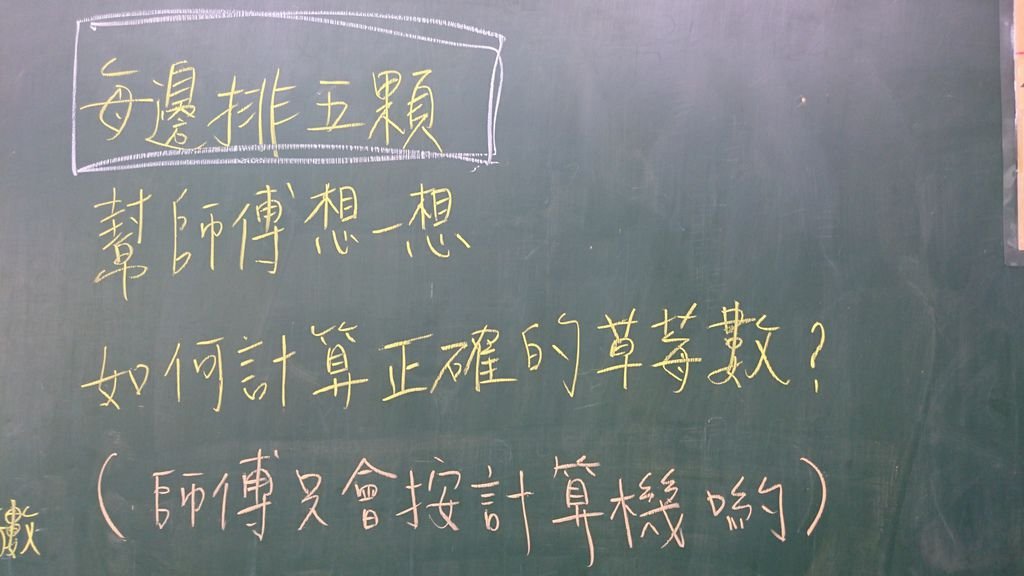 每邊排五顆
幫師傅想一想
如何計算正確的草莓數?
(師傅只會按計算機喲)
數